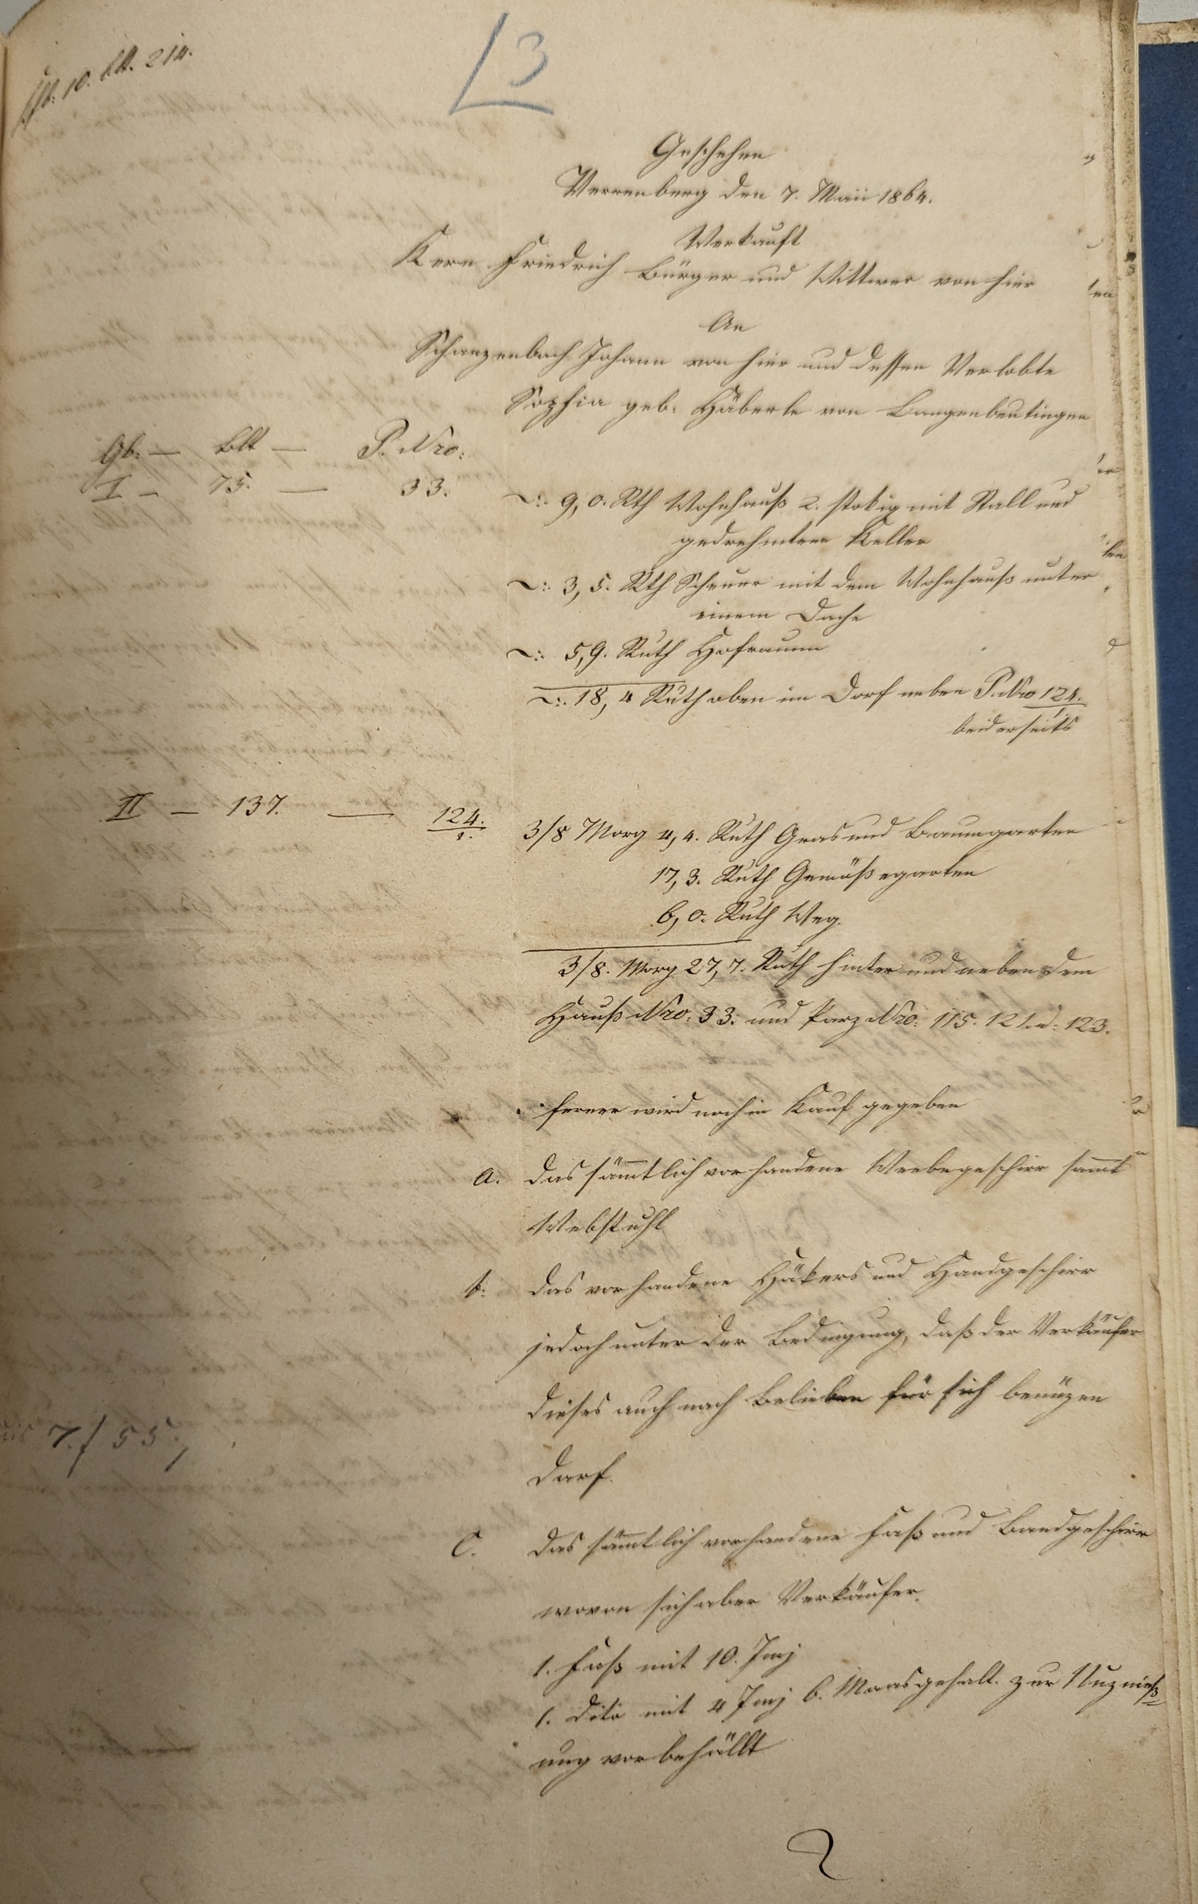 10. Bl. 214.
3
Geschehen
Verrenberg den 7. Maii 1864.
Verkauft
Kern Friedrich Bürger und Wittwer von hier
An
Schanzenbach Johann von hier und dessen Verlobte
Sophia geb. Häberle von Langenbeutingen
Gb. — Blt — P. Nro:
I — 75. — 33. 9,0. Rth Wohnhauß 2. stokig mit Stall und
gedrehmten Keller
3,5. Rth Scheuer mit dem Wohnhauß unter
einem Dache
5,9. Ruth Hofraum
18,4 Ruth oben im Dorf neben P. Nro 124.
beiderseits
II — 137. — 124. 3/8 Morg 4,4. Ruth Gras und Baumgarten
1.
17,3. Ruth Gemüßegarten
6,0. Ruth Weg
3/8. Morg 27,7. Ruth hinter und neben dem
Hauß Nro: 33. und Parz Nro: 115. 121. u. 123.
ferner wird noch in Kauf gegeben
a. das sämtlich vorhandene Webegeschirr sammt
Webstuhl
b. das vorhandene Häkers und Handgeschirr
jedoch unter der Bedingung, daß der Verkäufer
dieses auch nach Belieben für sich benüzen
darf.
7. f 55
C. das sämtlich vorhandene Faß und Bandgeschirr
wovon sich aber Verkäufer
1. Faß mit 10. Imj
1. dito mit 4 Imj 6. Maasgehalt. zur Nuznieß=
ung vorbehällt